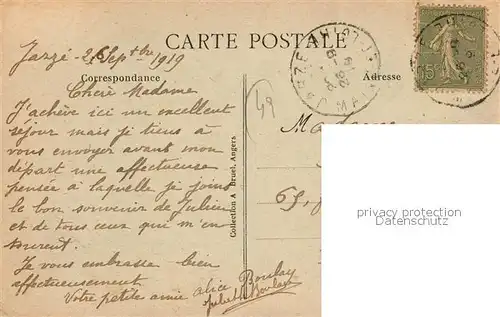 CARTE POSTALE
Jarzé - 26 Septbre 1919
Correspondance
Adresse
Chère Madame
J'achève ici un excellent
séjour mais je tiens à
vous envoyer avant mon
départ une affectueuse
pensée à laquelle je joins
le bon souvenir de Julien
et de tous ceux qui m'en
Je vous embrasse bien
affectueusement
Votre petite amie alice Boulay
Collection A Bruel, Angers
49
JARZE
15c
65,
privacy protection
Datenschutz